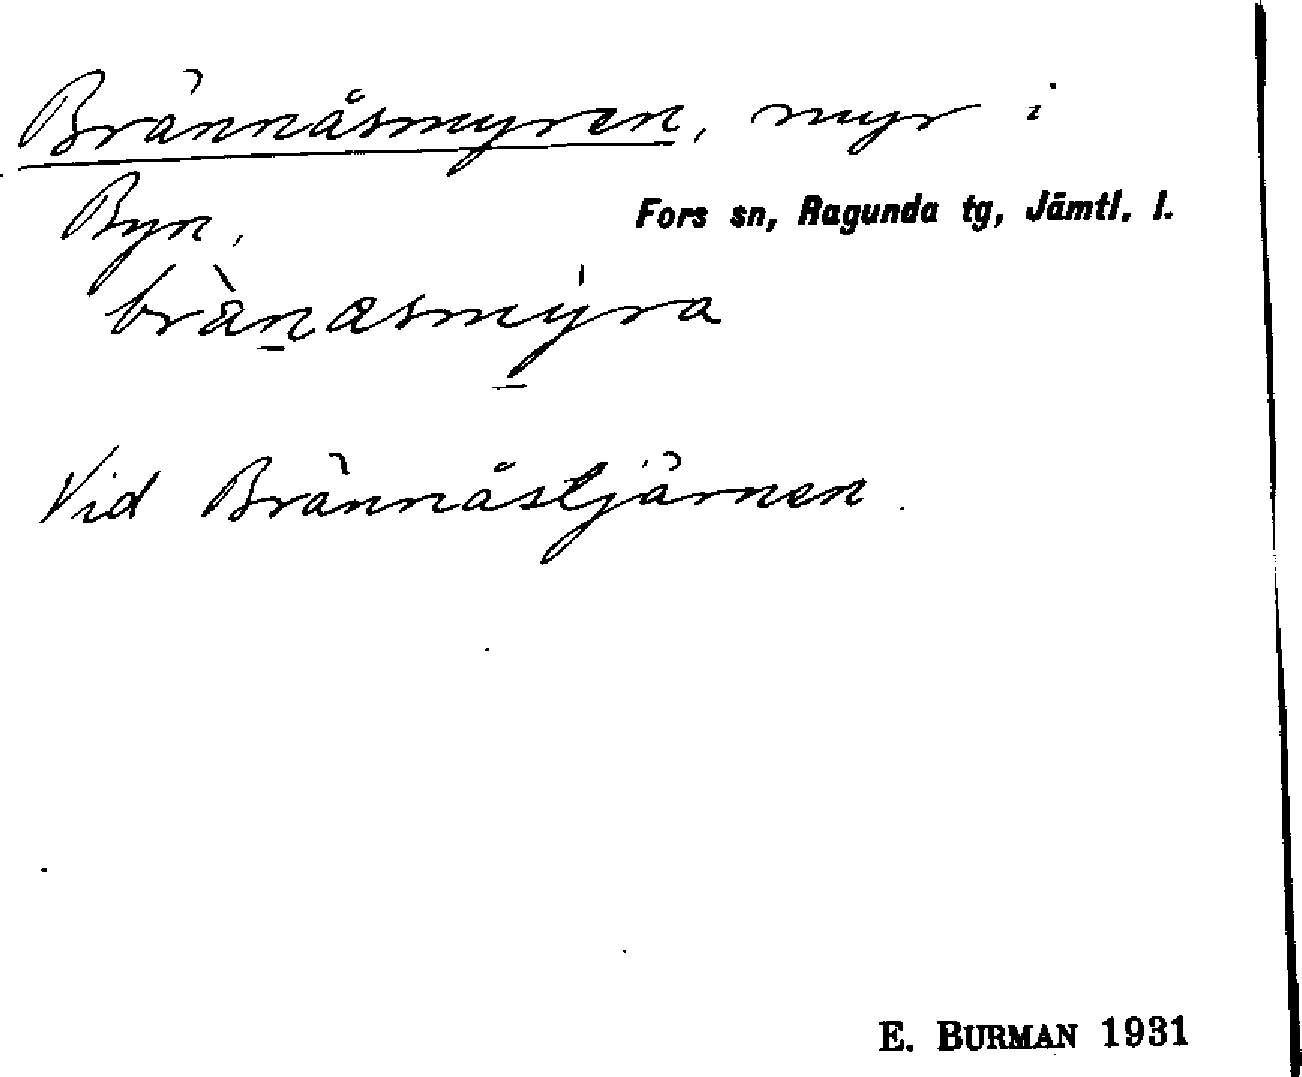 Brännåsmyren, myr i
Byn, Fors sn, Ragunda tg, Jämtl. l.
brä̀n̲asmy̲̍ra
Vid Brännåstjärnen.
E. BURMAN 1931